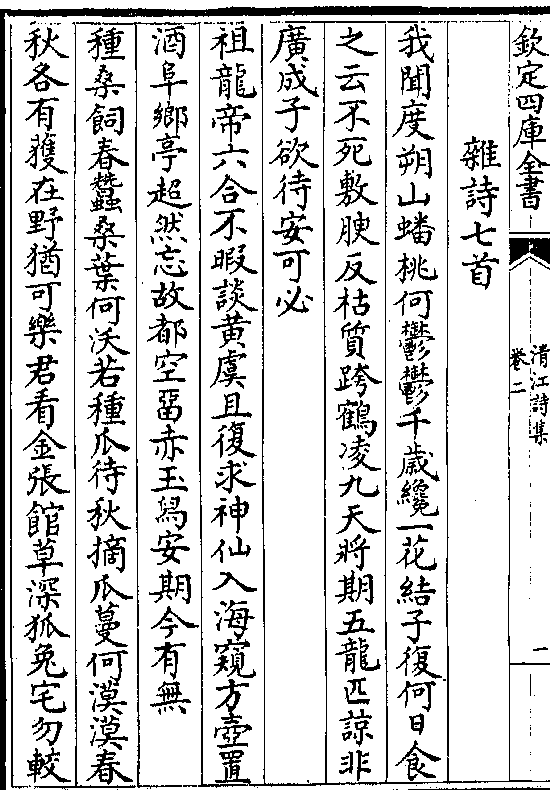 欽定四庫全書
清江詩集
卷二
一
雜詩七首
我聞度朔山蟠桃何鬱鬱千歲纔一花結子復何日食
之云不死敷腴反枯質跨鶴凌九天將期五龍匹諒非
廣成子欲待安可必
祖龍帝六合不暇談黄虞且復求神仙入海窺方壺置
酒阜鄉亭超然忘故都空留赤玉舄安期今有無
種桑飼春蠶桑葉何沃若種瓜待秋摘瓜蔓何漠漠春
秋各有獲在野猶可樂君看金張館草深狐兔宅勿較